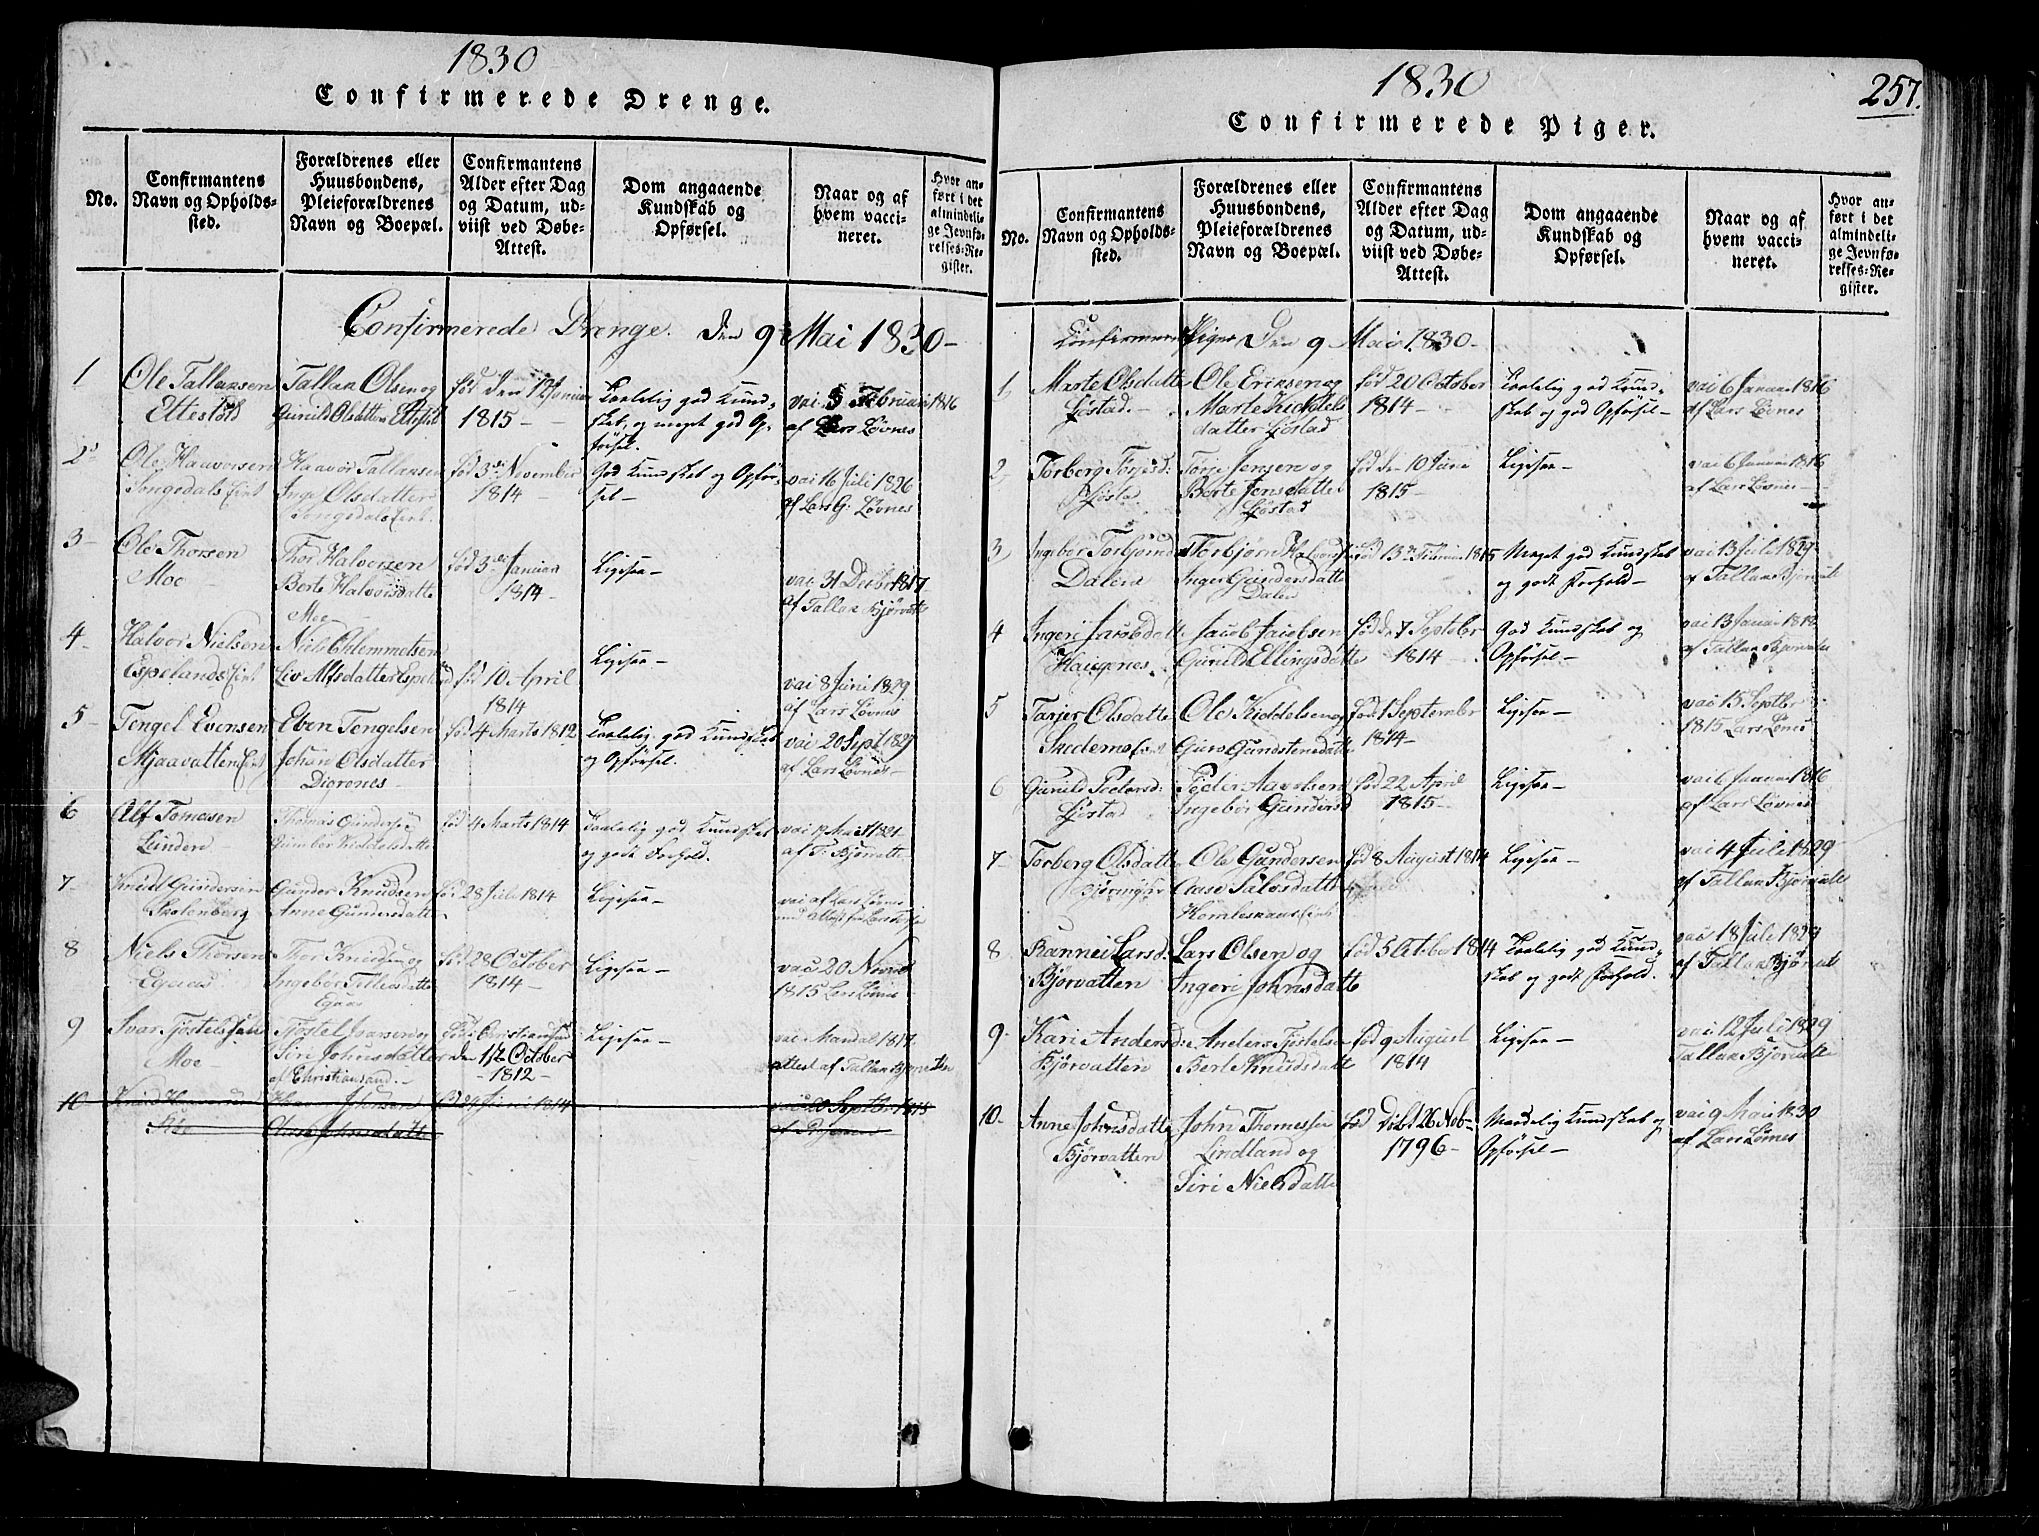 1830
Confirmerede Drenge.
No.
Confirmantens
Navn og Opholds-
sted.
Forældrenes eller
Huusbondens,
Pleieforældrenes
Navn og Boepæl.
Confirmantens
Alder efter Dag
og Datum, ud-
viist ved Døbe-
Attest.
Dom angaaende
Kundskab og
Opførsel.
Naar og af
hvem vacci-
neret.
Hvor an-
ført i det
almindeli-
ge Jevnfø-
relses-Re-
gister.
Confirmerede Drenge. Den 9 Mai 1830-
1
Ole Tallaksen
Tallak Olsen og
Gunild Olsdatter
født den
1815-
Taalelig god Kund-
skab, og meget god Op-
førsel.
vai 5 Februari 1816
af Lars Løvnes
2
Ole Haavorsen
Songedals Eiet
Haavor Tallaksen
Inge Olsdatter
Songedals Eiet.
fød 3de November
1814-
God Kundskab og Opfør-
sel-
vai 16 Juli 1826
af Lars G. Løvnes
3-
Ole Thorsen
Moe-
Thor Halvorsen
Berte Halvorsdatte
Moe-
fød 3de Januar
1814-
Ligesaa-
vai 31 Decbr 1817
af Tallak Bjørvatte
4-
Halvor Nielsen
Espelands Eiet
Niels Chlemmetsen
Liv Alfsdatter Espeland
fød 10 April
1814
Ligesaa-
vai 8 Juni 1829
af Lars Løvnes
5-
Tengel Evensen
Mjaavatten Eiet
Even Tengelsen
Johan Olsdatter
fød 4 Marts 1812
Taalelig god Kundskab
og Opførsel.
vai 20 Sept 1827
af Lars Løvnes-
6
Alf Tomesen
Lunden-
Thomas Gundersen
Gunbor Kiddelsdatte
fød 4 Marts 1814
Taalelig god Kundskab
og godt Forhold.
af T. Bjørvatte-
7-
Knud Gundersen
Skolenberg
Gunder Knudsen
Anne Gundersdatte
fød 28 Juli 1814
Ligesaa-
vai af Lars Løvnes
8
Niels Thorsen
Thor Knudsen og
Ingebor
fød 28 October
1814-
Ligesaa-
vai 20 Novbr
1815 Lars Løvnes
9
Ivar Tjøstelsen
Moe-
Tjøstel Ivarsen og
Siri Johnsdatter
af Christiansand.-
den 12 October
-1812-
Ligesaa-
vai Mandal 1817
attest af Tallak Bjørvatten
10
Knud
Johnsen
Aase Johnsdatte
1814
vai 20 Septbr 1815
1830
257.
Confirmerede Piger.
No.
Confirmantens
Navn og Opholds-
sted.
Forældrenes eller
Huusbondens,
Pleieforældrenes
Navn og Boepæl.
Confirmantens
Alder efter Dag
og Datum, ud-
viist ved Døbe-
Attest.
Dom angaaende
Kundskab og
Opførsel.
Naar og af
hvem vacci-
neret.
Hvor an-
ført i det
almindeli-
ge Jevnfø-
relses-Re-
gister.
Piger Den 9 Mai 1830-
1,
Marte Olsdatte
Ljøstad.-
Ole Eriksen og
Marte Kiddels
datter Ljøstad
fød 20 October
1814-
Taalelig god Kund-
skab og god Opførsel-
vai 6 Januar 1816
af Lars Løvnes
2,
Torberg Torjesd:
Ljøstad
Torje Jensen og
Berte Jensdatte
Ljøstad
fød den 10 Juni
1815-
Ligesaa-
vai 6 Januar 1816
af Lars Løvnes-
3,
Ingebor Torbjørnsd
Dalen
Torbjørn Halvorsen
Inger Gundersdatte
Dalen
Meget god Kundskab
og godt Forhold-
vai 13 Juli 1829
af Tallak Bjørvatte
4
Ingeri Jacobdatte
Jacob Jacobsen
Gunild Ellingsdatte
fød 7 Septebr
1814-
God Kundskab og
Opførsel-
af Tallak Bjørvatte
5
Tarjer Olsdatte
Ole Kiddelsen og
Guro Gundstensdatte
fød 1 Septembr
1814-
Ligesaa-
vai 15 Septbr
1815 Lars Løvnes
6
Gunild Pedersd:
Ljøstad
Peder Aavelsen
Ingebor Gundersd
fød 22 April
1815-
Ligesaa-
vai 6 Januar 1816
af Lars Løvnes
7-
Torberg Olsdatte
Ole Gundersen
Aase Salvesdatte
fød 8 August 1814
Ligesaa-
vai 4 Juli 1829
af Tallak Bjørvatte
8
Rannei Larsd:
Bjørvatten
Lars Olsen og
Ingeri Johnsdatte
fød 5 October 1814
Taalelig god Kund-
skab og godt Forhold.
vai 18 Juli 1829
af Tallak Bjørvatte
9-
Kari Andersd:
Bjørvatten
Anders Tjøstelsen
Bert Knudsdatte
fød 9 August
1814
Ligesaa-
vai 12 Juli 1829
Tallak Bjørvatte
10-
Anne Johnsdatte
Bjørvatten
John Thomessen
Lindland og
Siri Nielsdatte
fød Døbt 26 Nob-
1796-
Maadelig Kundskab og
Opførsel-
vai 9 Mai 1830
af Lars Løvnes